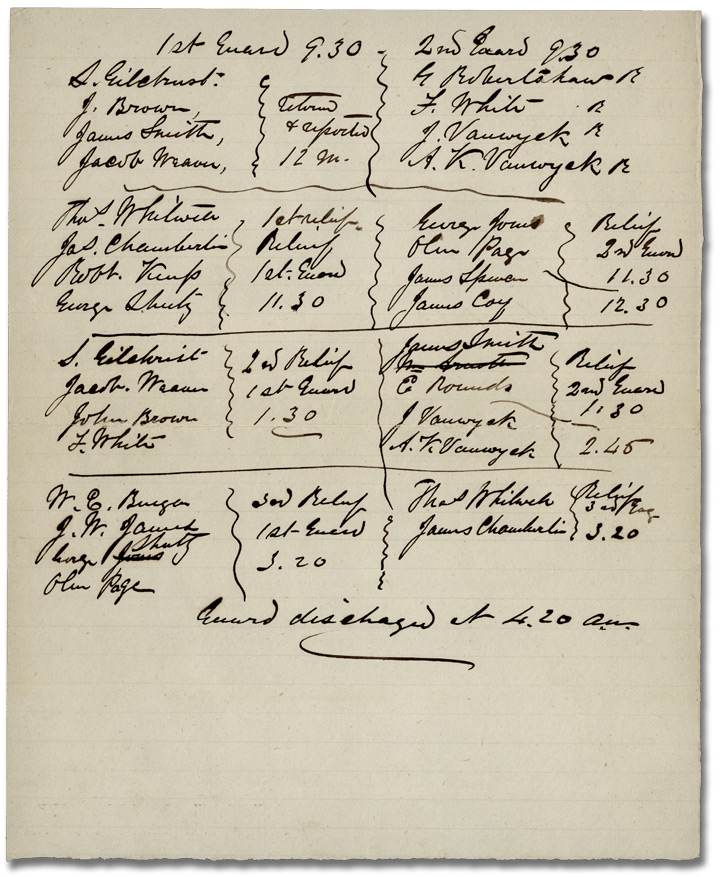 1st Guard 9.30 - 2nd Guard 9.30
S. Gilchrist. G Robertshaw R
J. Brown, returned F. White R
James Smith, & reported J. Vanwyck R
Jacob Weaver, 12 m. A. K. Vanwyck R
Thos Whitweh 1st relief George Jones Relief
Jas. Chamberlin Relief Olin Page 2nd Guard
Robt. Kemp 1st Guard James Spencer 11.30
George Shutz 11.30 James Coy 12.30
S. Gilchrist 2nd Relief James Smith Relief
Jacob. Weaver 1st Guard E Rounds 2nd Guard
John Brown 1.30 J Vanwyck 1.30
F. White A. K Vanwyck 2.45
W. E. 3rd Relief Thos Whitweh Relief
J. W. James 1st Guard James Chamberlin 3rd
George Jones Shutz 3.20 3.20
Olin Page
Guard discharged at 4.20 am